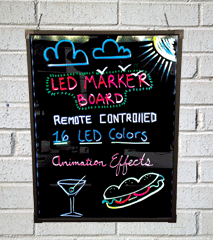 LED MARKER
BOARD
REMOTE CONTROLLED
16 LED Colors
Animation Effects